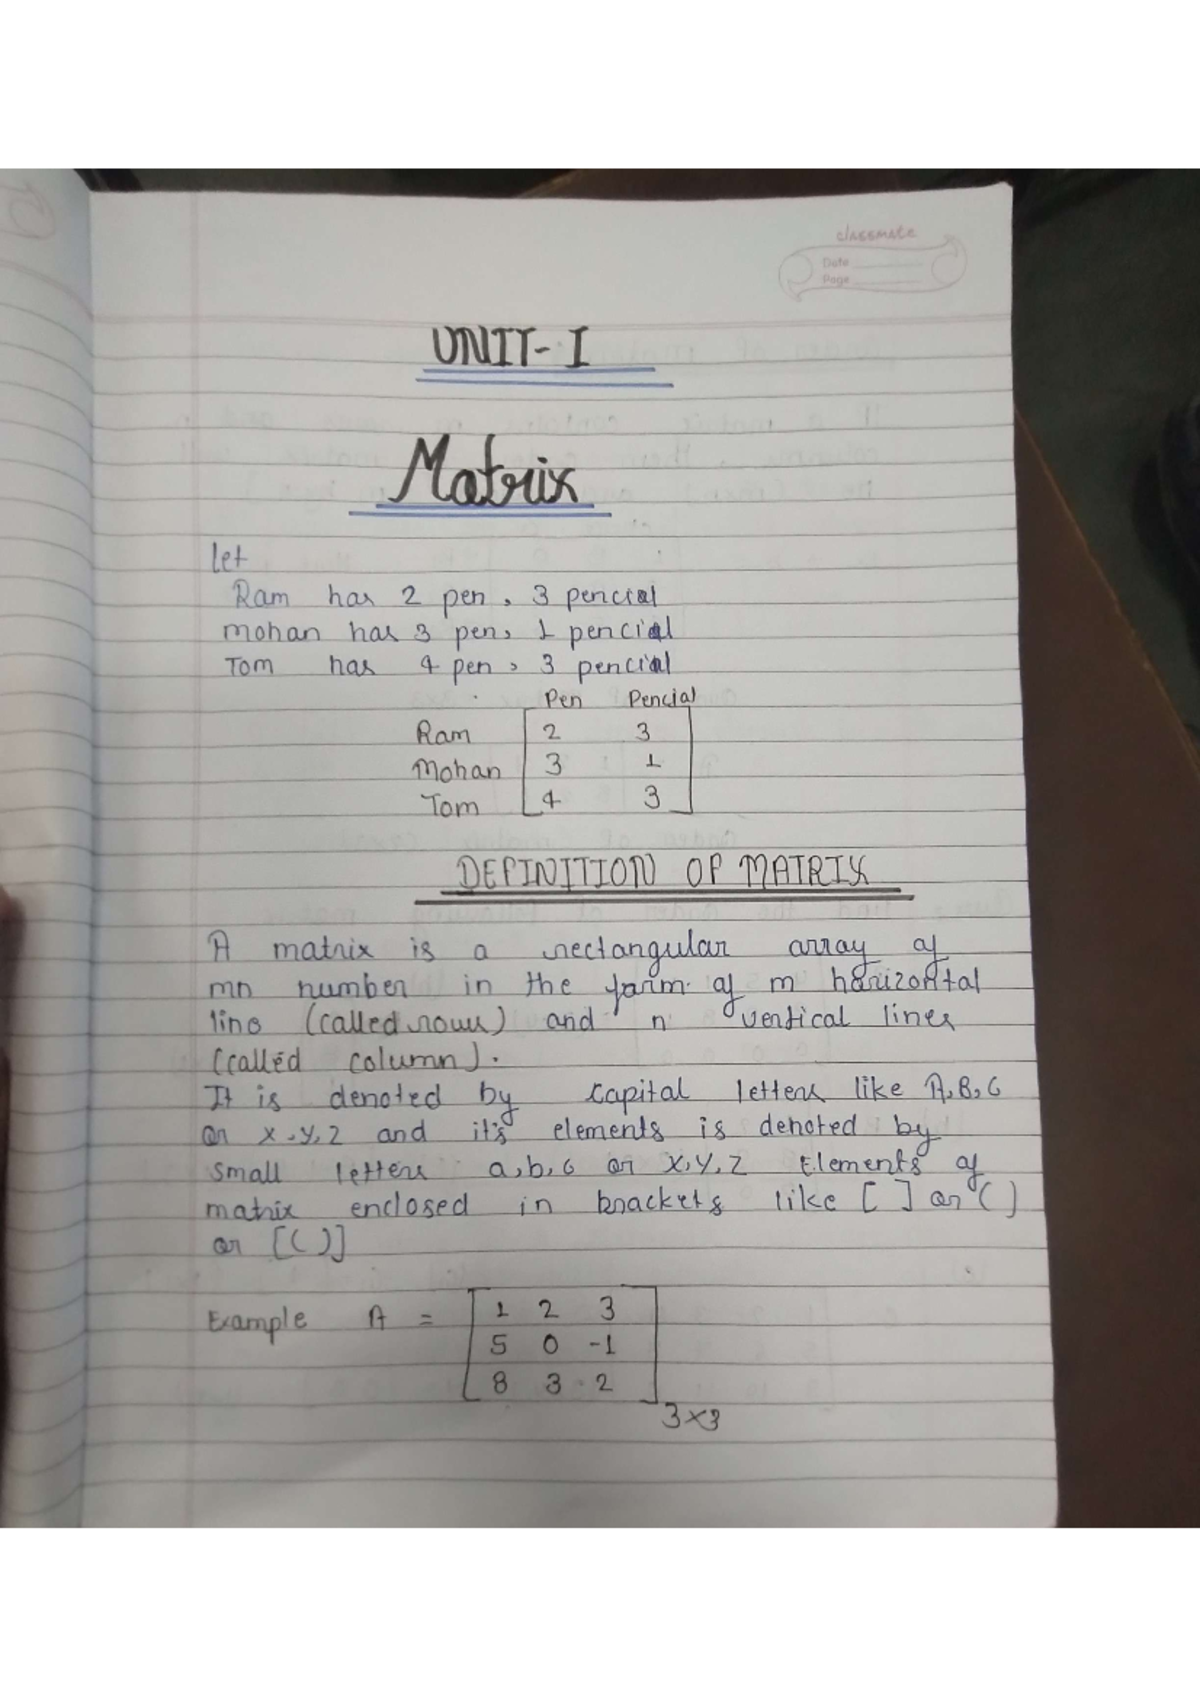 classmate
Date
Page
UNIT-I
Matrix
let
Ram has 2 pen, 3 pencial
Mohan has 3 pen, 1 pencial
Tom has 4 pen, 3 pencial
Pen Pencial
Ram 2 3
Mohan 3 1
Tom 4 3
DEFINITION OF MATRIX
A matrix is a rectangular array of
mn number in the form of m harizontal
line (called rows) and n vertical lines
(called column).
It is denoted by capital letters like A, B, C
or x, y, z and it's elements is denoted by
small letters a, b, c or x, y, z Elements of
matrix enclosed in brackets like [ ] or ( )
or [( )]
Example A = 1 2 3
5 0 -1
8 3 2
3×3